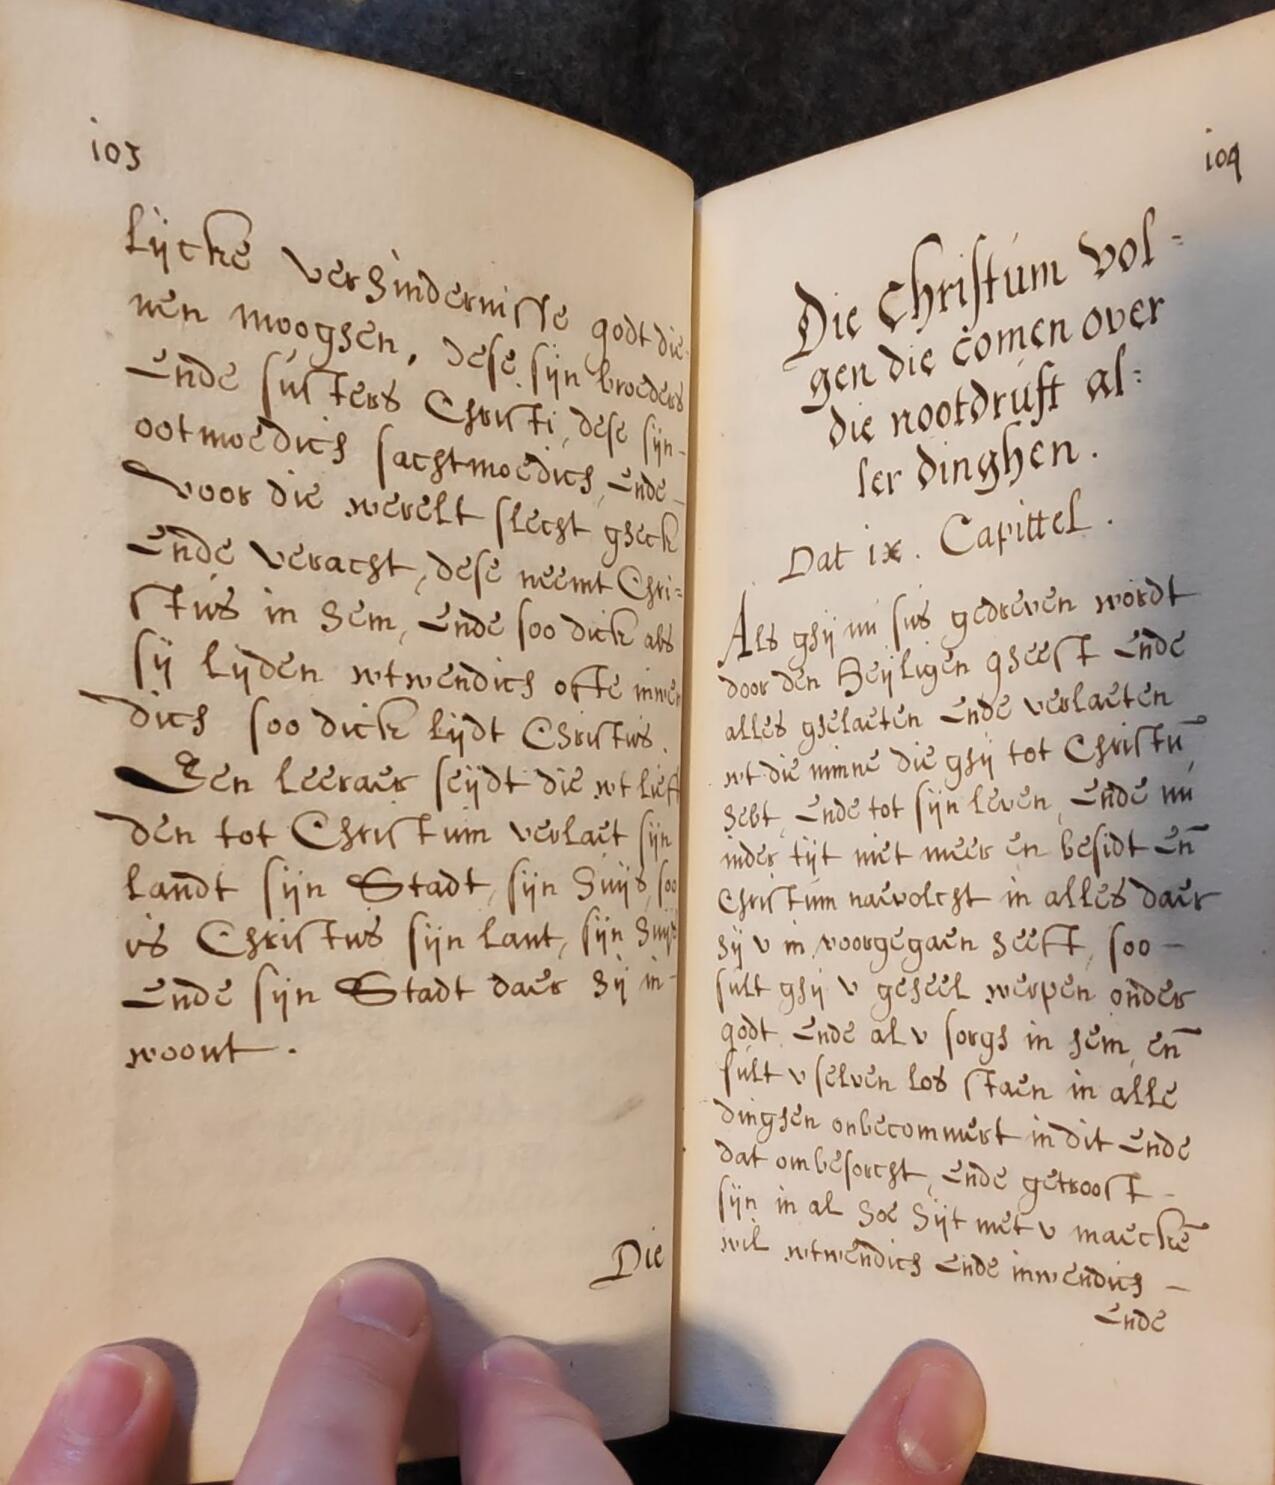 103
lijcke verhindernisse godt die-
nen mooghen, dese sijn broeders
ende susters Christi, dese sijn-
ootmoedich sachtmoedich, ende-
voor die werelt slecht gheck
ende veracht, dese neemt Chri=
stus in hem, ende soo dick als
sij lijden wtwendich ofte inwen
dich soo dick lijdt Christus.
Een leeraer seijdt die wt lief
den tot Christum verlaet sijn
landt sijn Stadt, sijn huijs, soo
is Christus sijn lant, sijn huijs
ende sijn Stadt daer hij in-
woont.
Die
104
Die Christum vol=
gen die comen over
die nootdruft al=
ler dinghen.
Dat ix. Capittel.
Als ghij nu sus gedreven wordt
door den Heijligen gheest ende
alles ghelaeten ende verlaeten
wt die minne die ghij tot Christū
hebt, ende tot sijn leven, ende nu
inder tijt niet meer en besidt eñ
Christum navolcht in alles daer
hij v in voorgegaen heeft, soo -
sult ghij v geheel werpen onder
godt ende al v sorgh in hem, eñ
sult v selven los staen in alle
dinghen onbecommert in dit ende
dat ombesorcht, ende getroost -
sijn in al hoe hijt met v maeckē
wil wtwendich ende inwendich -
ende